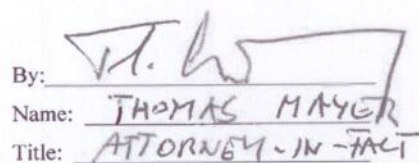 By:
Name: THOMAS MAYER
Title: ATTORNEY-IN-FACT